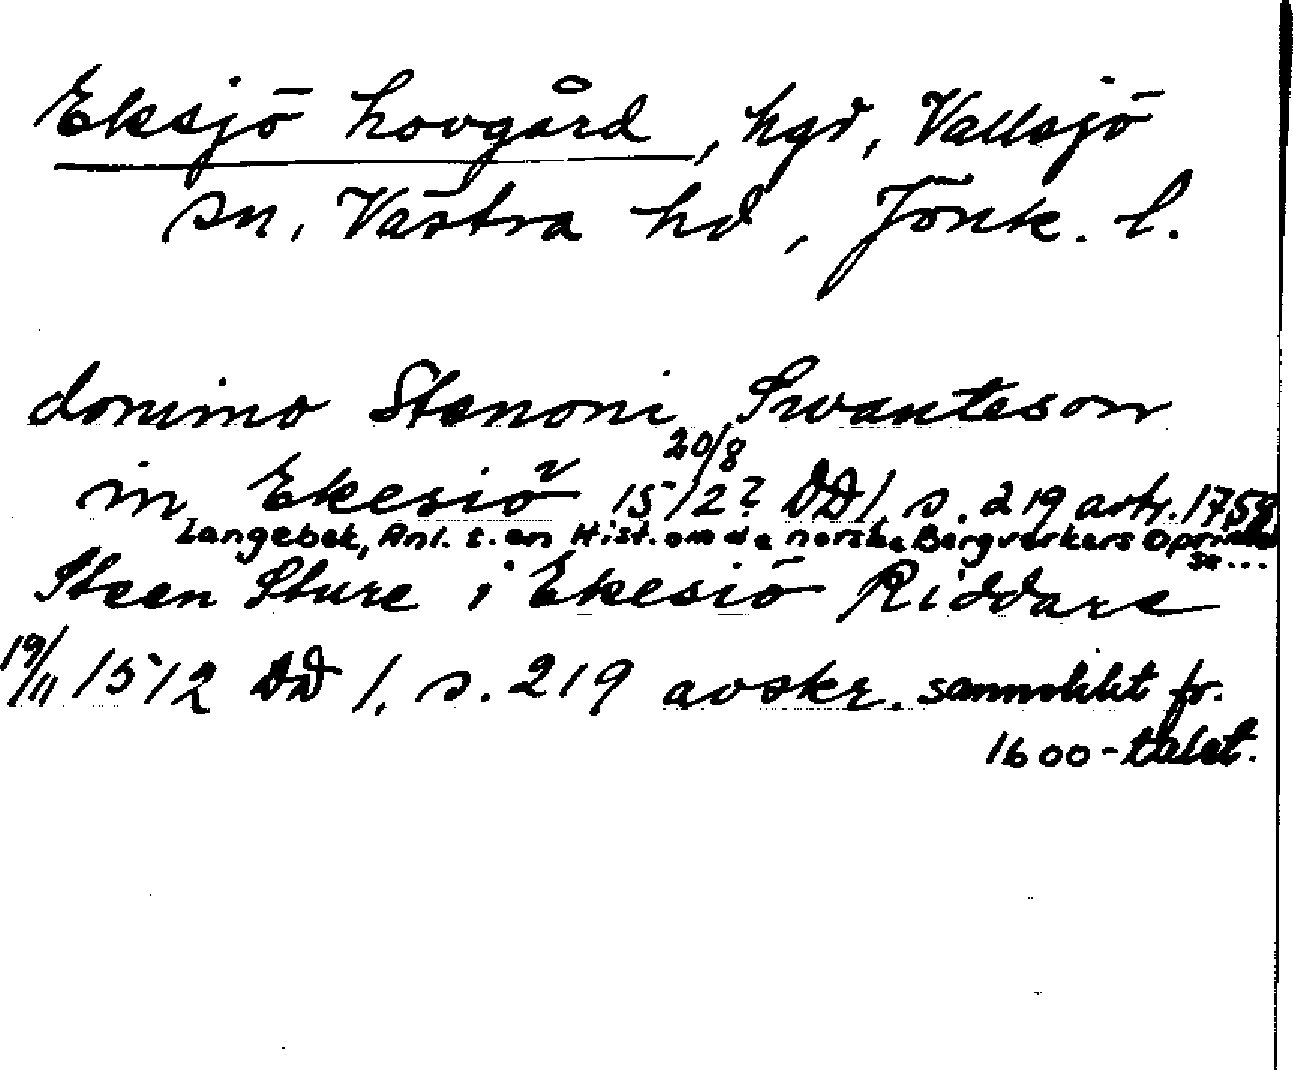 Eksjö hovgård, hgd, Vallsjö
sn, Västra hd, Jönk. l.
domino Stenoni Swanteson
in Ekesiö 20/8 1512? DD 1. s. 219 avtr. 1758
Langebek, Anl. t. en Hist. om de norske Bergverkers Oprindel
se...
Steen Sture i Ekesiö Riddare
19/11 1512 DD 1. s. 219 avskr. sannolikt fr.
1600-talet.